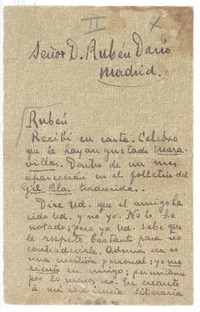 II
Señor D. Rubén Darío
Madrid.
Rubén
Recibí su carta. Celebro
que le hayan gustado Mara-
villas. Dentro de un mes
aparecerá en el folletín del
Gil Blas traducida.
Dice Ud. que el amigo ha
sido Ud. y no yo. No lo he
notado; pero ya Ud. sabe que
le respeto bastante para no
contradecirle. Además no es
una cuestión personal; yo me
siento su amigo;
por lo menos no. En cuanto
á mi literaria